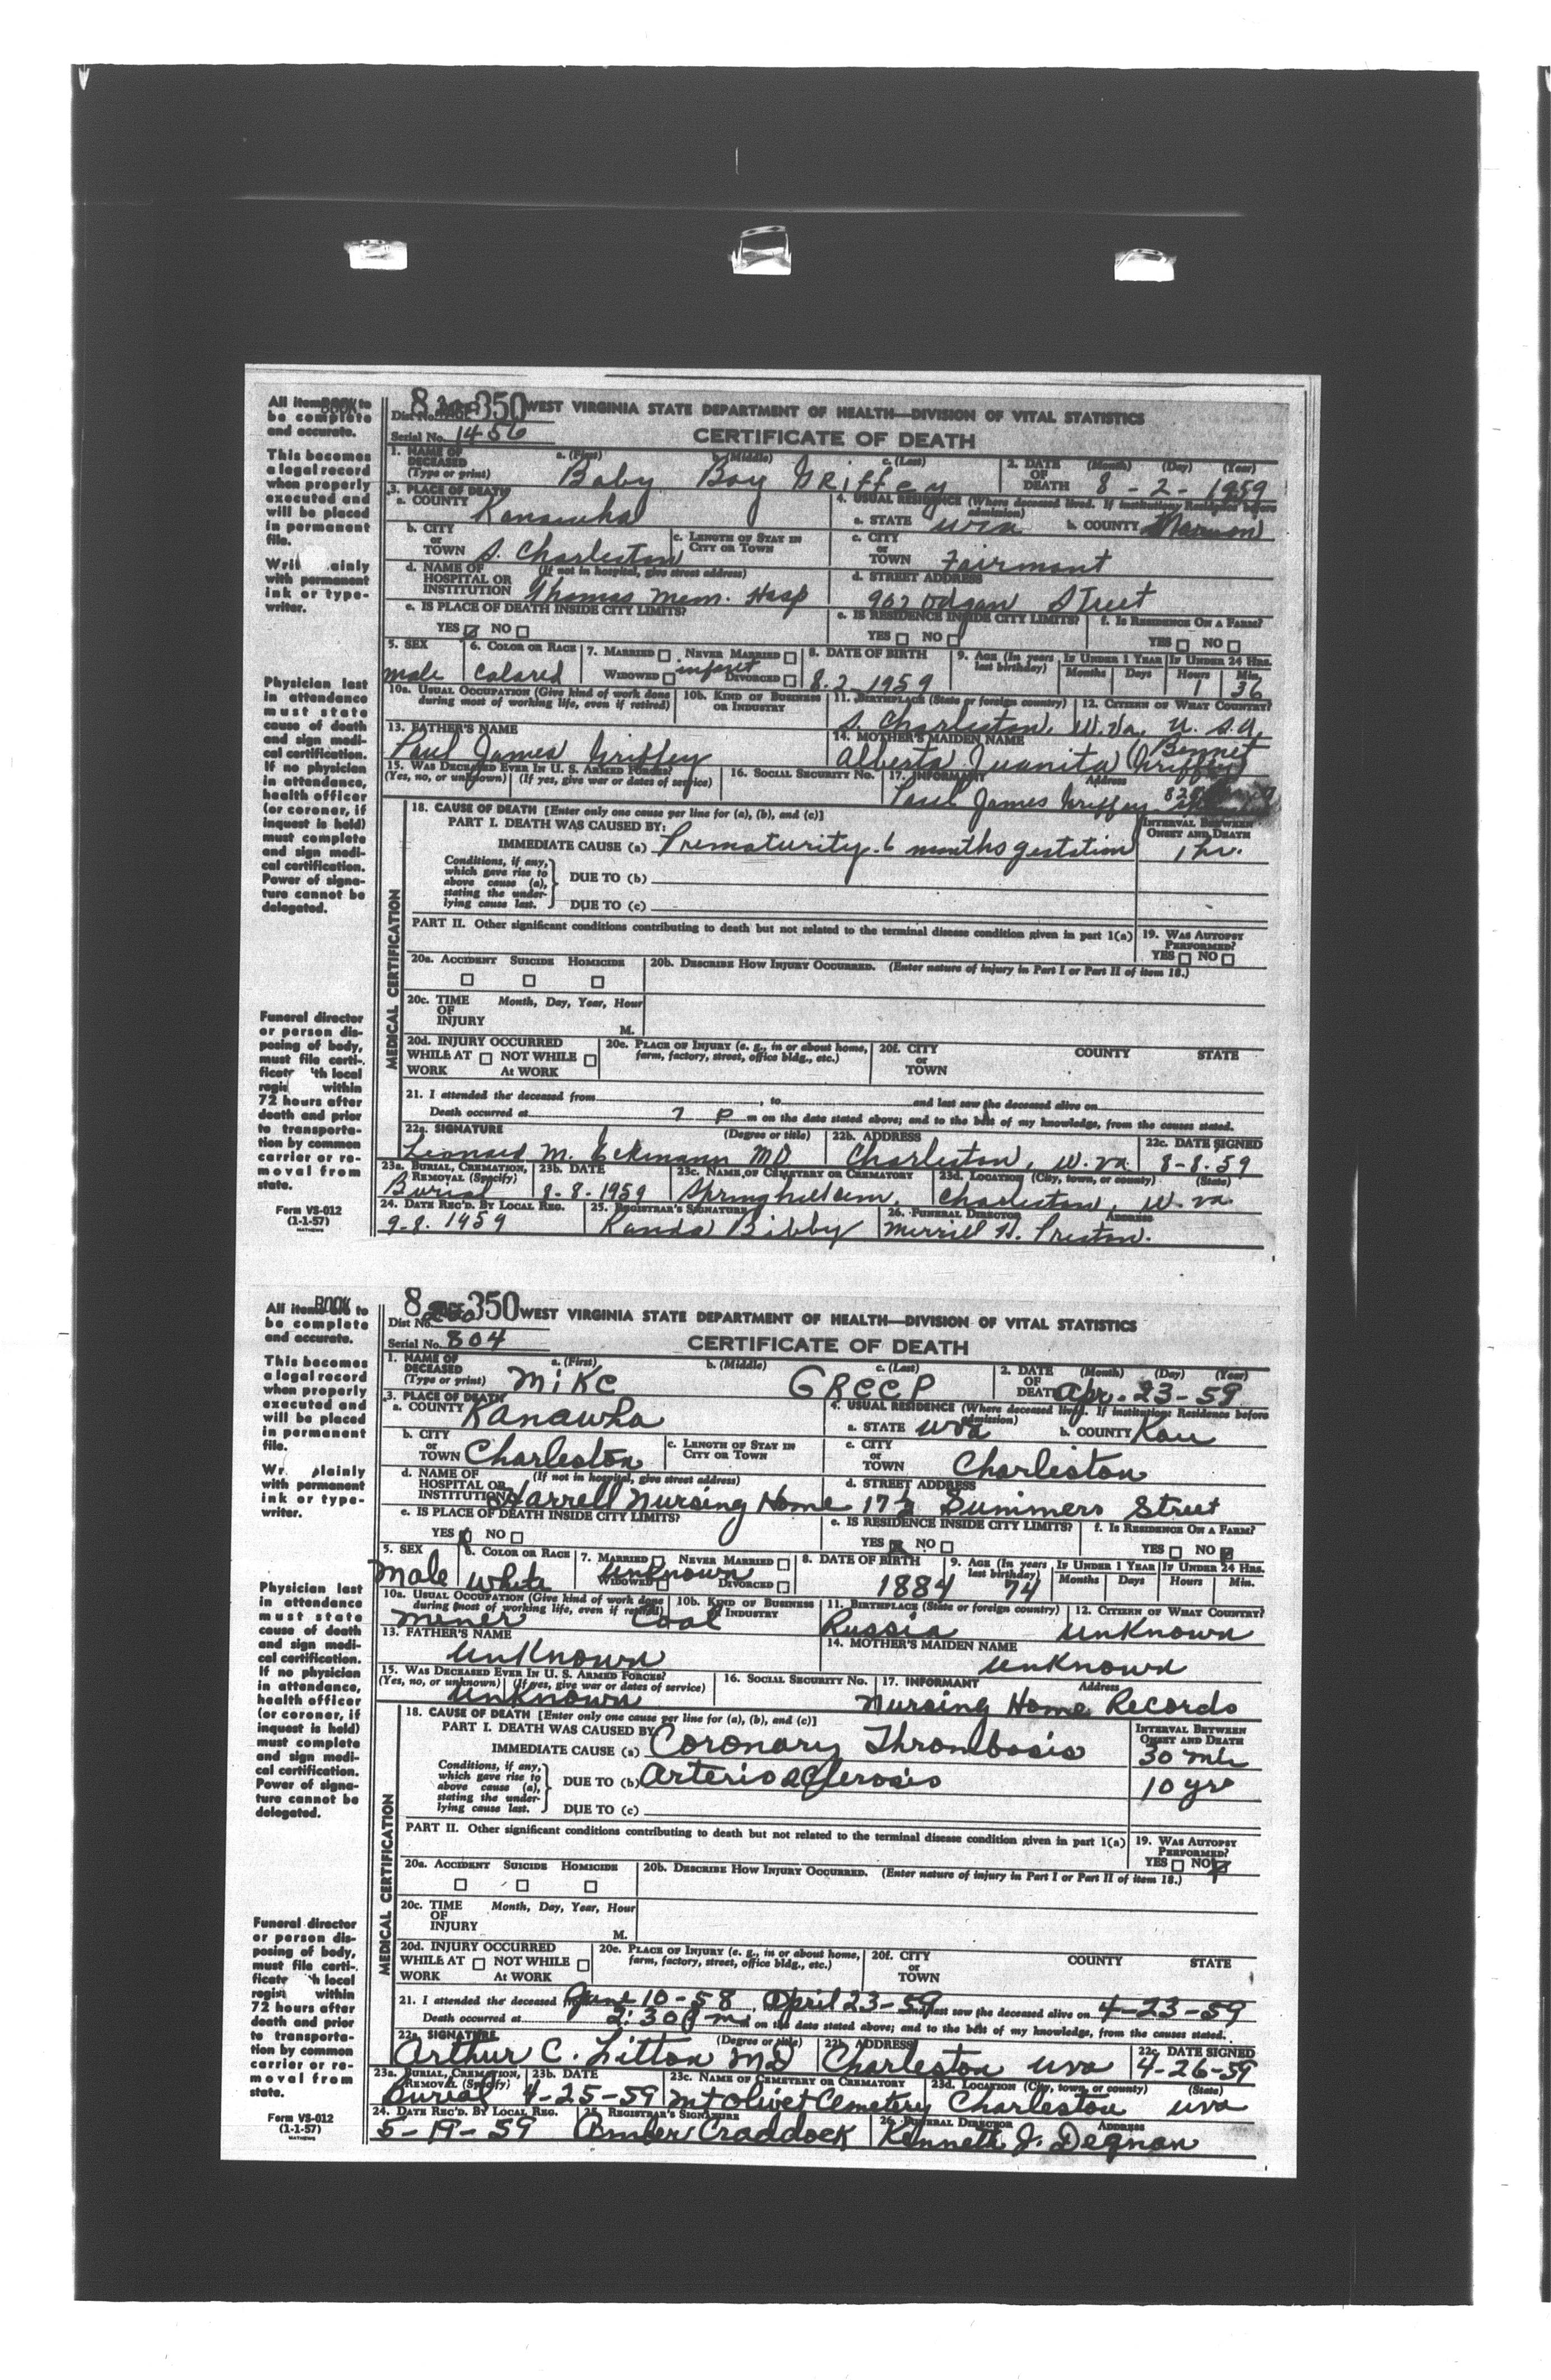 All items BOOK to
be complete
and accurate.
This becomes
a legal record
when properly
executed and
will be placed
in permanent
file.
ainly
with permanent
ink or type-
writer.
Physician last
in attendance
must state
cause of death
and sign medi-
cal certification.
If no physician
in attendance,
health officer
(or coroner, if
inquest is held)
must complete
and sign medi-
cal certification.
Power of signa-
ture cannot be
delegated.
Funeral director
or person dis-
posing of body,
must file certi-
ficate 'th local
regis within
72 hours after
death and prior
to transporta-
tion by common
carrier or re-
moval from
state.
Form VS-012
(1-1-57)
MATHEWS
8 350 WEST VIRGINIA STATE DEPARTMENT OF HEALTH—DIVISION OF VITAL STATISTICS
Dist No.
Serial No. 1456 CERTIFICATE OF DEATH
1. NAME OF DECEASED (Type or print) a. (First) b. (Middle) c. (Last) 2. DATE OF DEATH (Month) (Day) (Year)
Baby Boy Griffey 8 - 2 - 1959
3. PLACE OF DEATH 4. USUAL RESIDENCE (Where deceased lived. If institution: Residence before admission)
a. COUNTY Kanawha a. STATE wva b. COUNTY Marion
b. CITY or TOWN S. Charleston c. LENGTH OF STAY IN CITY OR TOWN c. CITY or TOWN Fairmont
d. NAME OF HOSPITAL OR INSTITUTION (If not in hospital, give street address) Thomas Mem. Hosp d. STREET ADDRESS 902 Street
e. IS PLACE OF DEATH INSIDE CITY LIMITS? e. IS RESIDENCE INSIDE CITY LIMITS? f. IS RESIDENCE ON A FARM?
YES NO YES NO YES NO
5. SEX 6. COLOR OR RACE 7. MARRIED NEVER MARRIED 8. DATE OF BIRTH 9. AGE (In years last birthday) IF UNDER 1 YEAR IF UNDER 24 HRS.
WIDOWED DIVORCED Months Days Hours Min.
male colored infant 8-2-1959 1 36
10a. USUAL OCCUPATION (Give kind of work done during most of working life, even if retired) 10b. KIND OF BUSINESS OR INDUSTRY 11. BIRTHPLACE (State or foreign country) 12. CITIZEN OF WHAT COUNTRY?
S. Charleston, W.Va. U. S. A.
13. FATHER'S NAME 14. MOTHER'S MAIDEN NAME
Paul James Griffey Alberta Juanita (Bennet Griffey)
15. WAS DECEASED EVER IN U. S. ARMED FORCES? 16. SOCIAL SECURITY NO. 17. INFORMANT Address
(Yes, no, or unknown) (If yes, give war or dates of service) Paul James Griffey
18. CAUSE OF DEATH [Enter only one cause per line for (a), (b), and (c)] INTERVAL BETWEEN ONSET AND DEATH
PART I. DEATH WAS CAUSED BY:
IMMEDIATE CAUSE (a) Prematurity. 6 months gestation 1 hr.
Conditions, if any, which gave rise to above cause (a), stating the under-lying cause last.
DUE TO (b)
DUE TO (c)
PART II. Other significant conditions contributing to death but not related to the terminal disease condition given in part 1(a) 19. WAS AUTOPSY PERFORMED?
YES NO
20a. ACCIDENT SUICIDE HOMICIDE 20b. DESCRIBE HOW INJURY OCCURRED. (Enter nature of injury in Part I or Part II of item 18.)
20c. TIME OF INJURY Month, Day, Year, Hour
M.
20d. INJURY OCCURRED 20e. PLACE OF INJURY (e. g., in or about home, farm, factory, street, office bldg., etc.) 20f. CITY or TOWN COUNTY STATE
WHILE AT WORK NOT WHILE At WORK
MEDICAL CERTIFICATION
21. I attended the deceased from , to and last saw the deceased alive on
Death occurred at 7 P m on the date stated above; and to the best of my knowledge, from the causes stated.
22a. SIGNATURE (Degree or title) 22b. ADDRESS 22c. DATE SIGNED
Leonard M. Eckmann MD Charleston, W. va. 8-8-59
23a. BURIAL, CREMATION, REMOVAL (Specify) 23b. DATE 23c. NAME OF CEMETERY OR CREMATORY 23d. LOCATION (City, town, or county) (State)
Burial 8-8-1959 Springhill cem. Charleston, W. va.
24. DATE REC'D. BY LOCAL REG. 25. REGISTRAR'S SIGNATURE 26. FUNERAL DIRECTOR ADDRESS
9-8-1959 Bibby Merrill Preston.
All items are to BOOK
be complete
and accurate.
This becomes
a legal record
when properly
executed and
will be placed
in permanent
file.
Wr plainly
with permanent
ink or type-
writer.
Physician last
in attendance
must state
cause of death
and sign medi-
cal certification.
If no physician
in attendance,
health officer
(or coroner, if
inquest is held)
must complete
and sign medi-
cal certification.
Power of signa-
ture cannot be
delegated.
Funeral director
or person dis-
posing of body,
must file certi-
ficate h local
regist within
72 hours after
death and prior
to transporta-
tion by common
carrier or re-
moval from
state.
Form VS-012
(1-1-57)
MATHEWS
8 350 WEST VIRGINIA STATE DEPARTMENT OF HEALTH—DIVISION OF VITAL STATISTICS
Dist No.
Serial No. 804 CERTIFICATE OF DEATH
1. NAME OF DECEASED (Type or print) a. (First) b. (Middle) c. (Last) 2. DATE OF DEATH (Month) (Day) (Year)
Mike GREEP Apr. 23-59
3. PLACE OF DEATH 4. USUAL RESIDENCE (Where deceased lived. If institution: Residence before admission)
a. COUNTY Kanawha a. STATE wva b. COUNTY Kan
b. CITY or TOWN Charleston c. LENGTH OF STAY IN CITY OR TOWN c. CITY or TOWN Charleston
d. NAME OF HOSPITAL OR INSTITUTION (If not in hospital, give street address) Harrell Nursing Home d. STREET ADDRESS 17½ Summers Street
e. IS PLACE OF DEATH INSIDE CITY LIMITS? e. IS RESIDENCE INSIDE CITY LIMITS? f. IS RESIDENCE ON A FARM?
YES NO YES NO YES NO
5. SEX 6. COLOR OR RACE 7. MARRIED NEVER MARRIED 8. DATE OF BIRTH 9. AGE (In years last birthday) IF UNDER 1 YEAR IF UNDER 24 HRS.
WIDOWED DIVORCED Months Days Hours Min.
Male White Unknown 1884 74
10a. USUAL OCCUPATION (Give kind of work done during most of working life, even if retired) 10b. KIND OF BUSINESS OR INDUSTRY 11. BIRTHPLACE (State or foreign country) 12. CITIZEN OF WHAT COUNTRY?
Miner Coal Russia Unknown
13. FATHER'S NAME 14. MOTHER'S MAIDEN NAME
Unknown Unknown
15. WAS DECEASED EVER IN U. S. ARMED FORCES? 16. SOCIAL SECURITY NO. 17. INFORMANT Address
(Yes, no, or unknown) (If yes, give war or dates of service)
Unknown Nursing Home Records
18. CAUSE OF DEATH [Enter only one cause per line for (a), (b), and (c)] INTERVAL BETWEEN ONSET AND DEATH
PART I. DEATH WAS CAUSED BY
IMMEDIATE CAUSE (a) Coronary Thrombosis 30 min
Conditions, if any, which gave rise to above cause (a), stating the under-lying cause last.
DUE TO (b) Arteriosclerosis 10 yrs
DUE TO (c)
PART II. Other significant conditions contributing to death but not related to the terminal disease condition given in part 1(a) 19. WAS AUTOPSY PERFORMED?
YES NO
20a. ACCIDENT SUICIDE HOMICIDE 20b. DESCRIBE HOW INJURY OCCURRED. (Enter nature of injury in Part I or Part II of item 18.)
20c. TIME OF INJURY Month, Day, Year, Hour
M.
20d. INJURY OCCURRED 20e. PLACE OF INJURY (e. g., in or about home, farm, factory, street, office bldg., etc.) 20f. CITY or TOWN COUNTY STATE
WHILE AT WORK NOT WHILE At WORK
MEDICAL CERTIFICATION
21. I attended the deceased from June 10-58, April 23-59 and last saw the deceased alive on 4-23-59
Death occurred at 2:30 P m. on the date stated above; and to the best of my knowledge, from the causes stated.
22a. SIGNATURE (Degree or title) 22b. ADDRESS 22c. DATE SIGNED
Arthur C. Litton MD Charleston wva 4-26-59
23a. BURIAL, CREMATION, REMOVAL (Specify) 23b. DATE 23c. NAME OF CEMETERY OR CREMATORY 23d. LOCATION (City, town, or county) (State)
Burial 4-25-59 Mt Olivet Cemetery Charleston wva
24. DATE REC'D. BY LOCAL REG. 25. REGISTRAR'S SIGNATURE 26. FUNERAL DIRECTOR ADDRESS
5-19-59 Amber Craddock Kenneth J. Degnan